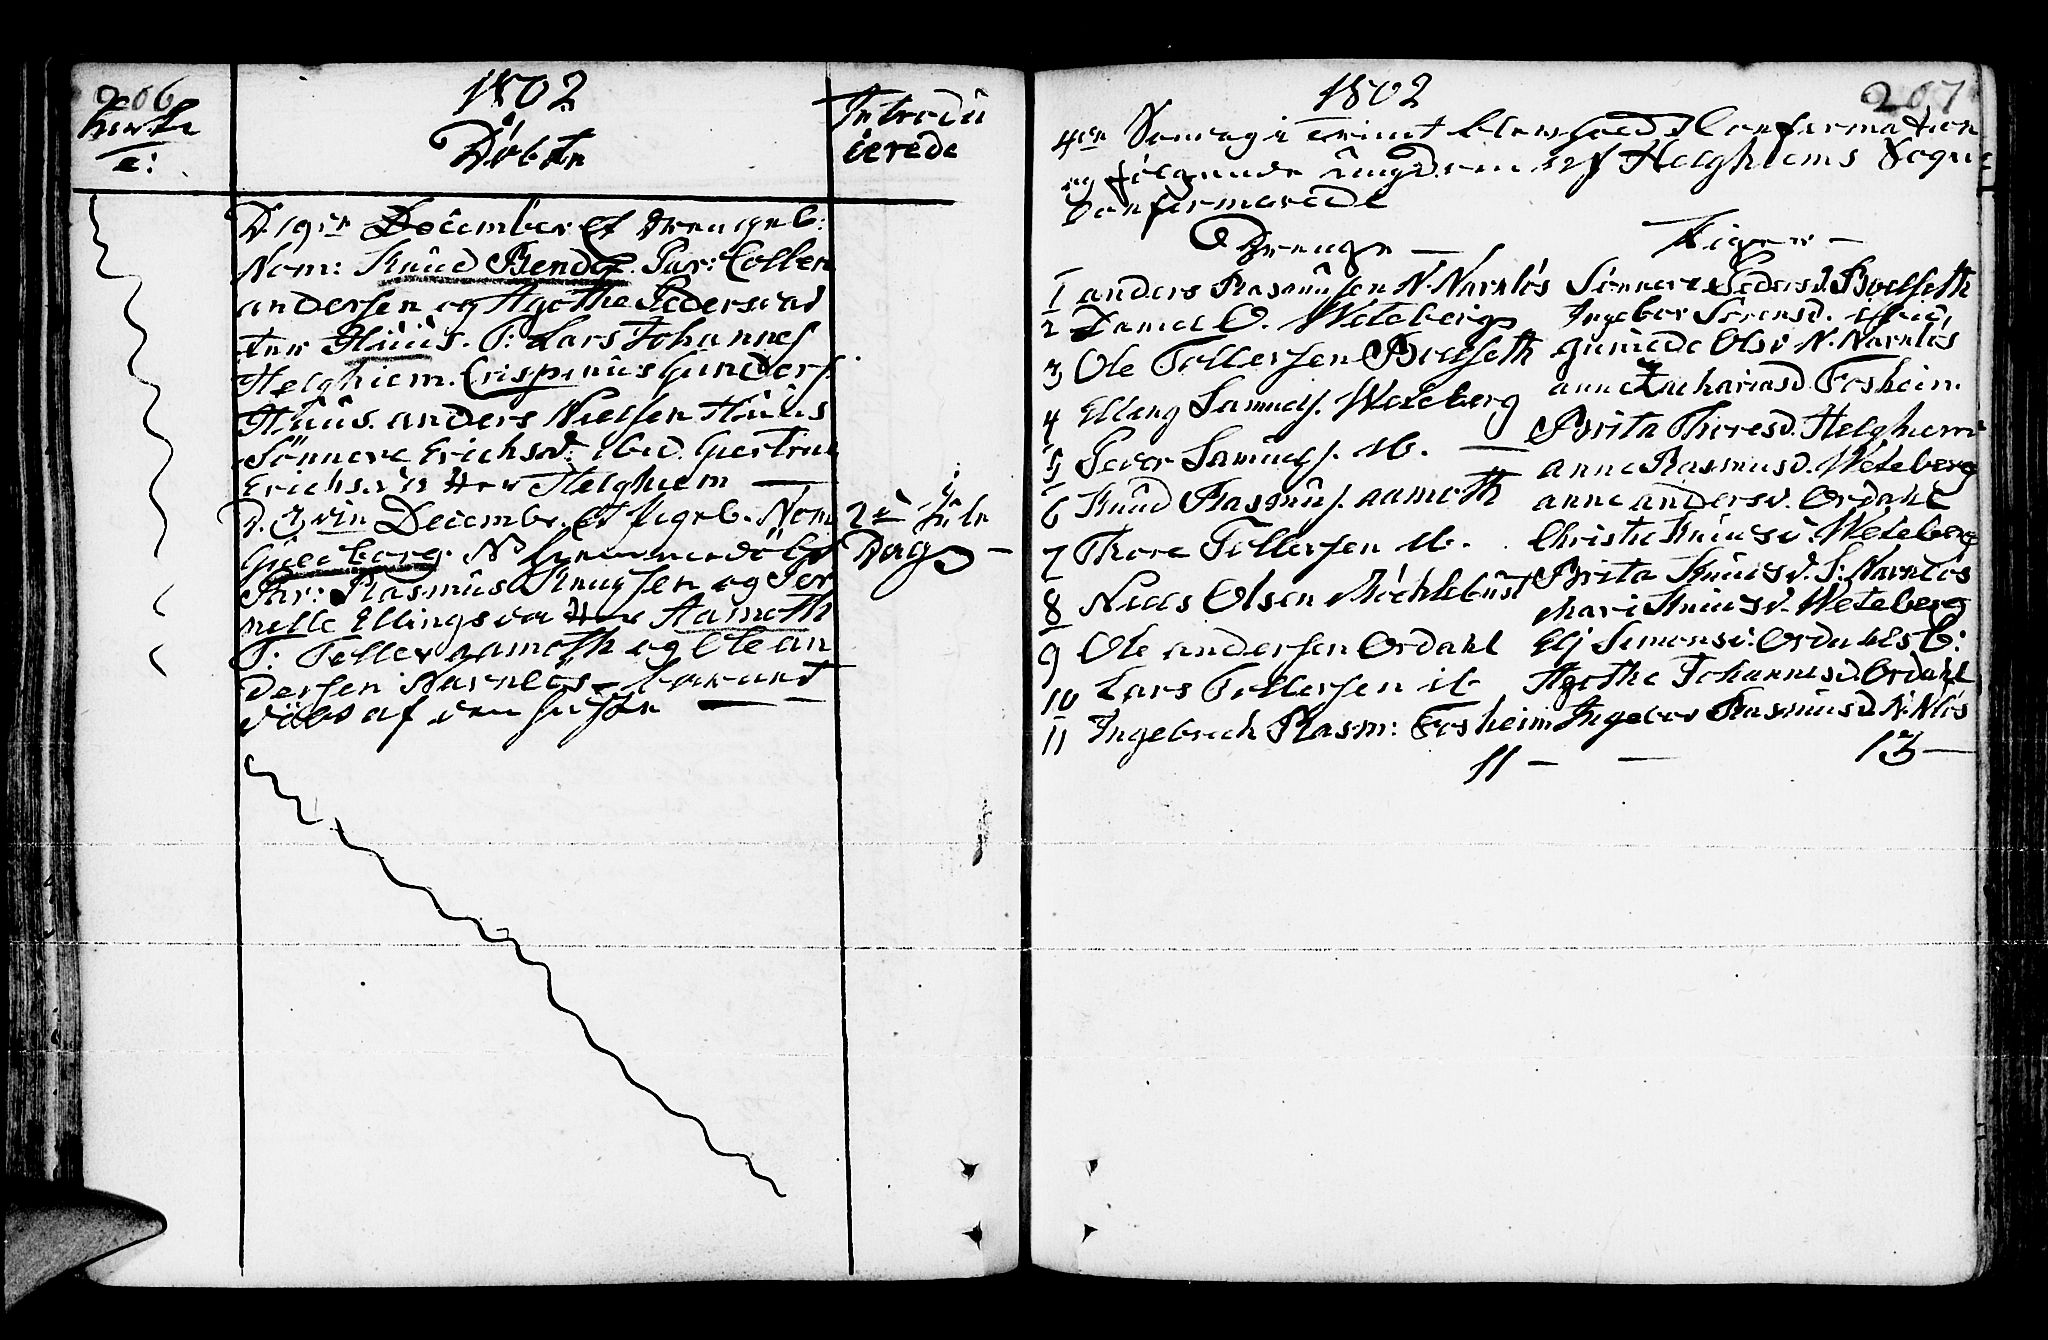 206
1802
Döbte
Introdu
cerede
D. 19de December et drengeb:
Nom: Knud Bendix. Par: Collen
andersen og Agothe Pedersdat
ter Huus. T: Lars Johannes
Helghiem. Crispinus Gunders.
Huus. anders Nielsen Huus
Sönneve Erichsd. ibid. Giertrue
Erichsd. Helghiem —
D. December. et pigeb. Nom
Par: Rasmus Knudsen og Per
nille Ellingsda Aamoth
T: Toller aamoth og Ole an
dersen Navnløs
döbt af
2den Jule
Dag —
1802
207
4de Sondag i advent blev holdt Confermation
og følgende ungdom af Helghiems Sogn
Confermerede
Drenge —
1 anders Rasmusen N. Navnlös
2 Daniel O. Weteberg
3 Ole Tollersen Boelseth
4 Elling Samuels. Weteberg
5 Peder Samuels. ib. —
6 Knud Rasmus. aamoth
7 Thore Tollersen ib.
8 Niels Olsen Möchlebust
9 Ole andersen Ordahl
10 Lars Tollersen ib
11 Ingebrech Rasm: Fosheim
11 —
Piger —
Sönneve Pedersd. Boelseth
Ingebor Sorensd.
Olsd N. Navnlös
anne Zachariasd. Fosheim.
Brita Thoresd. Helghiem
anne Rasmusd. Weteberg
anne andersd. Ordahl
Christie Knudsd Weteberg
Brita Knudsd. S: Navnlös
Mari Knudsd. Weteberg
Elj Simonsd. Ordahls E:
Agothe Johannesd. Ordahl
Ingebor Rasmusd. N: Nlös
13 —